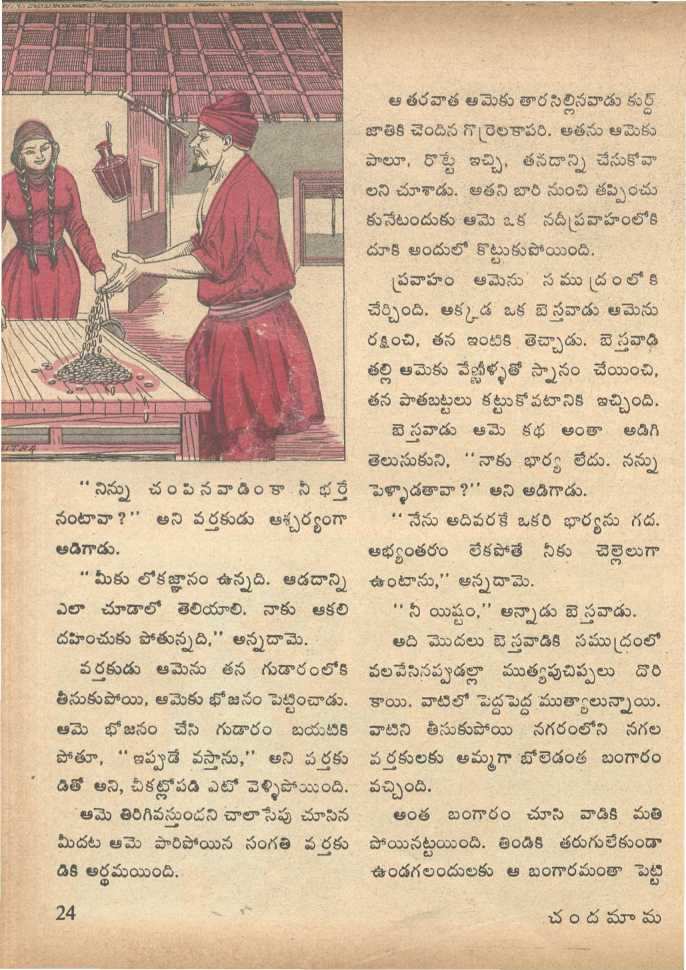 "నిన్ను చంపినవాడింకా నీ భర్తే
నంటావా?" అని వర్తకుడు ఆశ్చర్యంగా
అడిగాడు.
"మీకు లోకజ్ఞానం ఉన్నది. ఆడదాన్ని
ఎలా చూడాలో తెలియాలి. నాకు ఆకలి
దహించుకు పోతున్నది," అన్నదామె.
వర్తకుడు ఆమెను తన గుడారంలోకి
తీసుకుపోయి, ఆమెకు భోజనం పెట్టించాడు.
ఆమె భోజనం చేసి గుడారం బయటికి
పోతూ, "ఇప్పుడే వస్తాను," అని వర్తకు
డితో అని, చీకట్లోపడి ఎటో వెళ్ళిపోయింది.
ఆమె తిరిగివస్తుందని చాలాసేపు చూసిన
మీదట ఆమె పారిపోయిన సంగతి వర్తకు
డికి అర్థమయింది.
ఆ తరవాత ఆమెకు తారసిల్లినవాడు కుర్ద్
జాతికి చెందిన గొర్రెలకాపరి. అతను ఆమెకు
పాలూ, రొట్టే ఇచ్చి, తనదాన్ని చేసుకోవా
లని చూశాడు. అతని బారి నుంచి తప్పించు
కునేటందుకు ఆమె ఒక నదీప్రవాహంలోకి
దూకి అందులో కొట్టుకుపోయింది.
ప్రవాహం ఆమెను సముద్రంలోకి
చేర్చింది. అక్కడ ఒక బెస్తవాడు ఆమెను
రక్షించి, తన ఇంటికి తెచ్చాడు. బెస్తవాడి
తల్లి ఆమెకు వేణ్ణీళ్ళతో స్నానం చేయించి,
తన పాతబట్టలు కట్టుకోవటానికి ఇచ్చింది.
బెస్తవాడు ఆమె కథ అంతా అడిగి
తెలుసుకుని, "నాకు భార్య లేదు. నన్ను
పెళ్ళాడతావా?" అని అడిగాడు.
"నేను అదివరకే ఒకరి భార్యను గద.
అభ్యంతరం లేకపోతే నీకు చెల్లెలుగా
ఉంటాను," అన్నదామె.
"నీ యిష్టం," అన్నాడు బెస్తవాడు.
అది మొదలు బెస్తవాడికి సముద్రంలో
వలవేసినప్పుడల్లా ముత్యపుచిప్పలు దొరి
కాయి. వాటిలో పెద్దపెద్ద ముత్యాలున్నాయి.
వాటిని తీసుకుపోయి నగరంలోని నగల
వర్తకులకు అమ్మగా బోలెడంత బంగారం
వచ్చింది.
అంత బంగారం చూసి వాడికి మతి
పోయినట్టయింది. తిండికి తరుగులేకుండా
ఉండగలందులకు ఆ బంగారమంతా పెట్టి
24
చందమామ